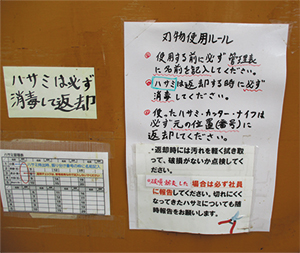 ハサミは必ず
消毒して返却
刃物使用ルール
使用する前に必ず管理表
に名前を記入してください。
ハサミは返却する時に必ず
消毒してください。
使ったハサミ・カッター・ナイフは
必ず元の位置(番号)に
返却してください。
・返却時には汚れを軽く拭き取
って、破損がないか点検してく
ださい。
場合は必ず社員
に報告してください。切れにくく
なってきたハサミについても随
時報告をお願いします。